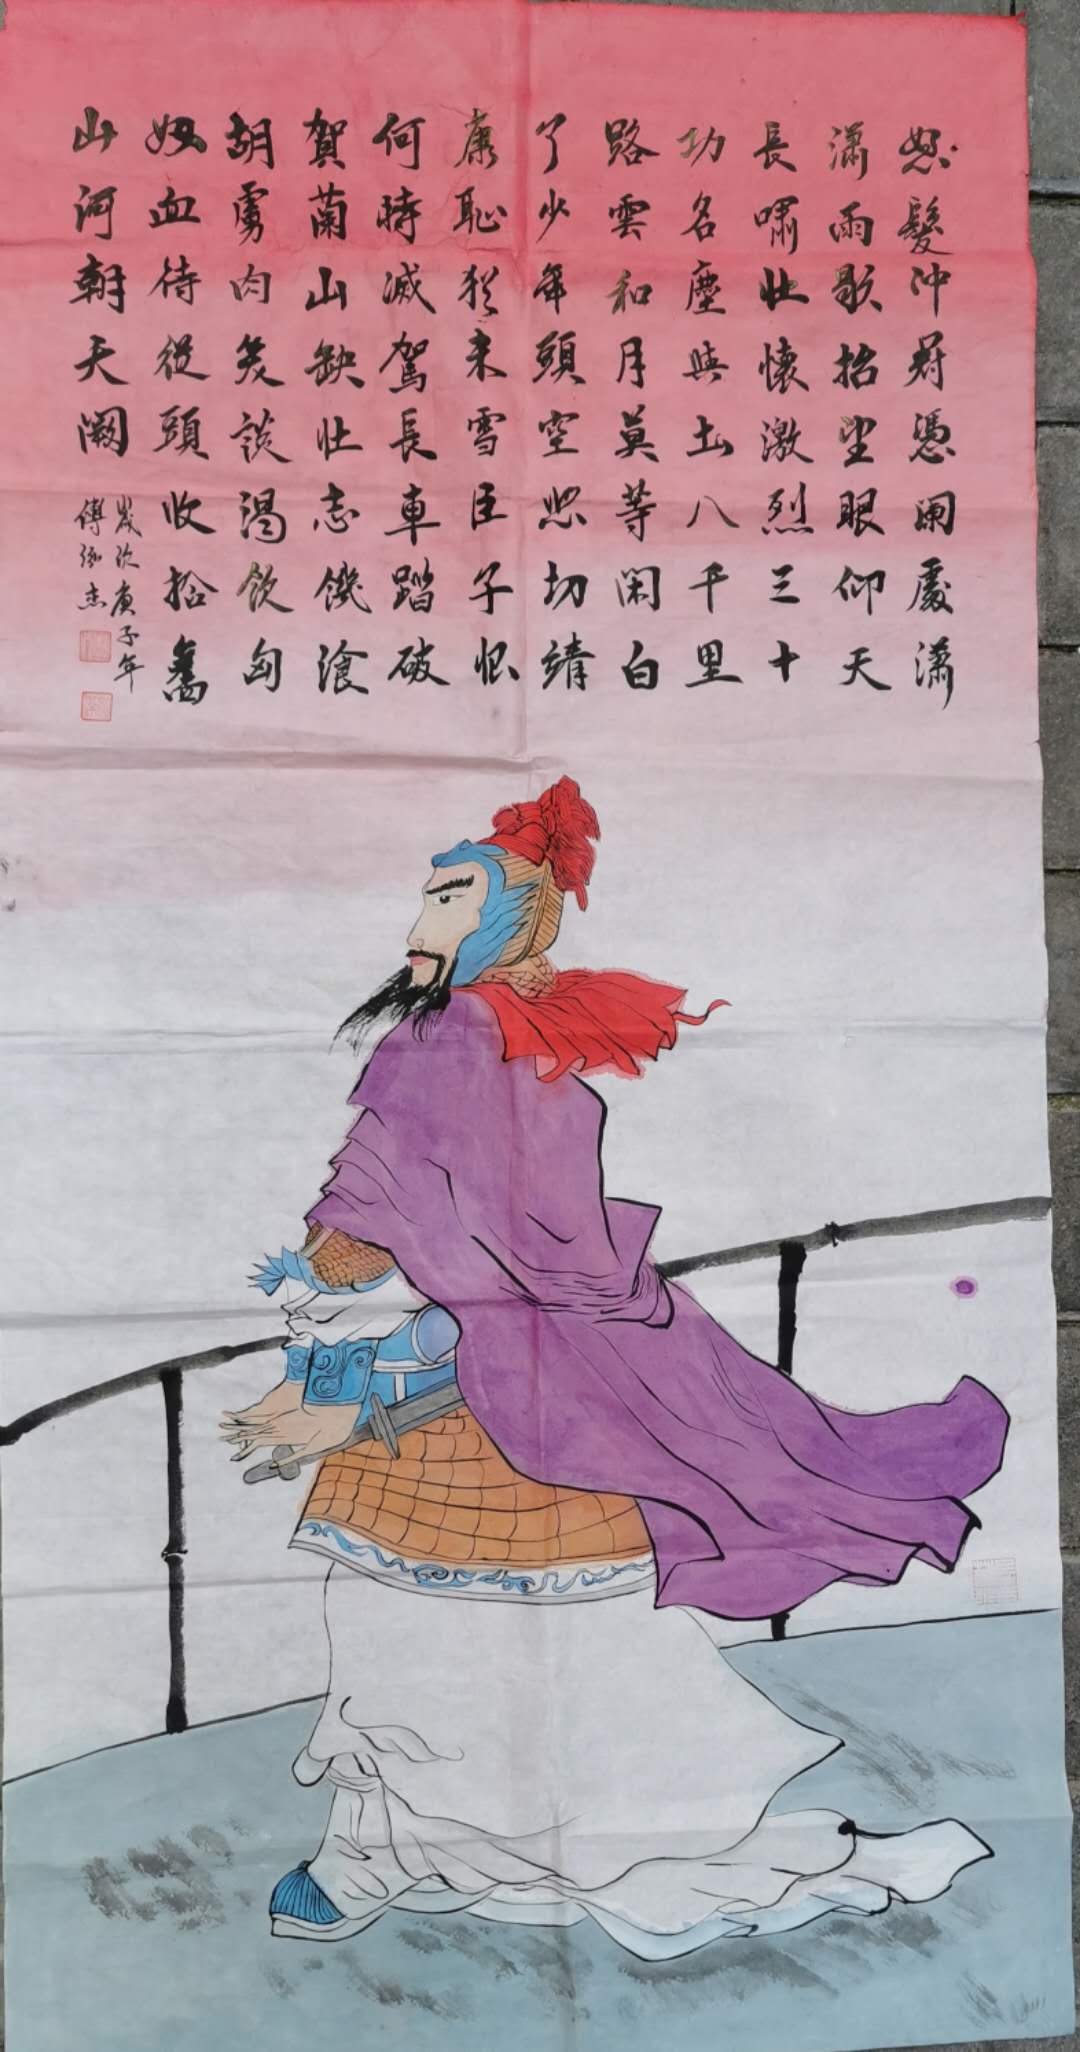 怒髮沖冠憑闌處瀟
瀟雨歇抬望眼仰天
長嘯壯懷激烈三十
功名塵與土八千里
路雲和月莫等閑白
了少年頭空悲切靖
康恥猶未雪臣子恨
何時滅駕長車踏破
賀蘭山缺壯志饑湌
胡虜肉笑談渴飲匈
奴血待從頭收拾舊
山河朝天闕
歲次庚子年
傅